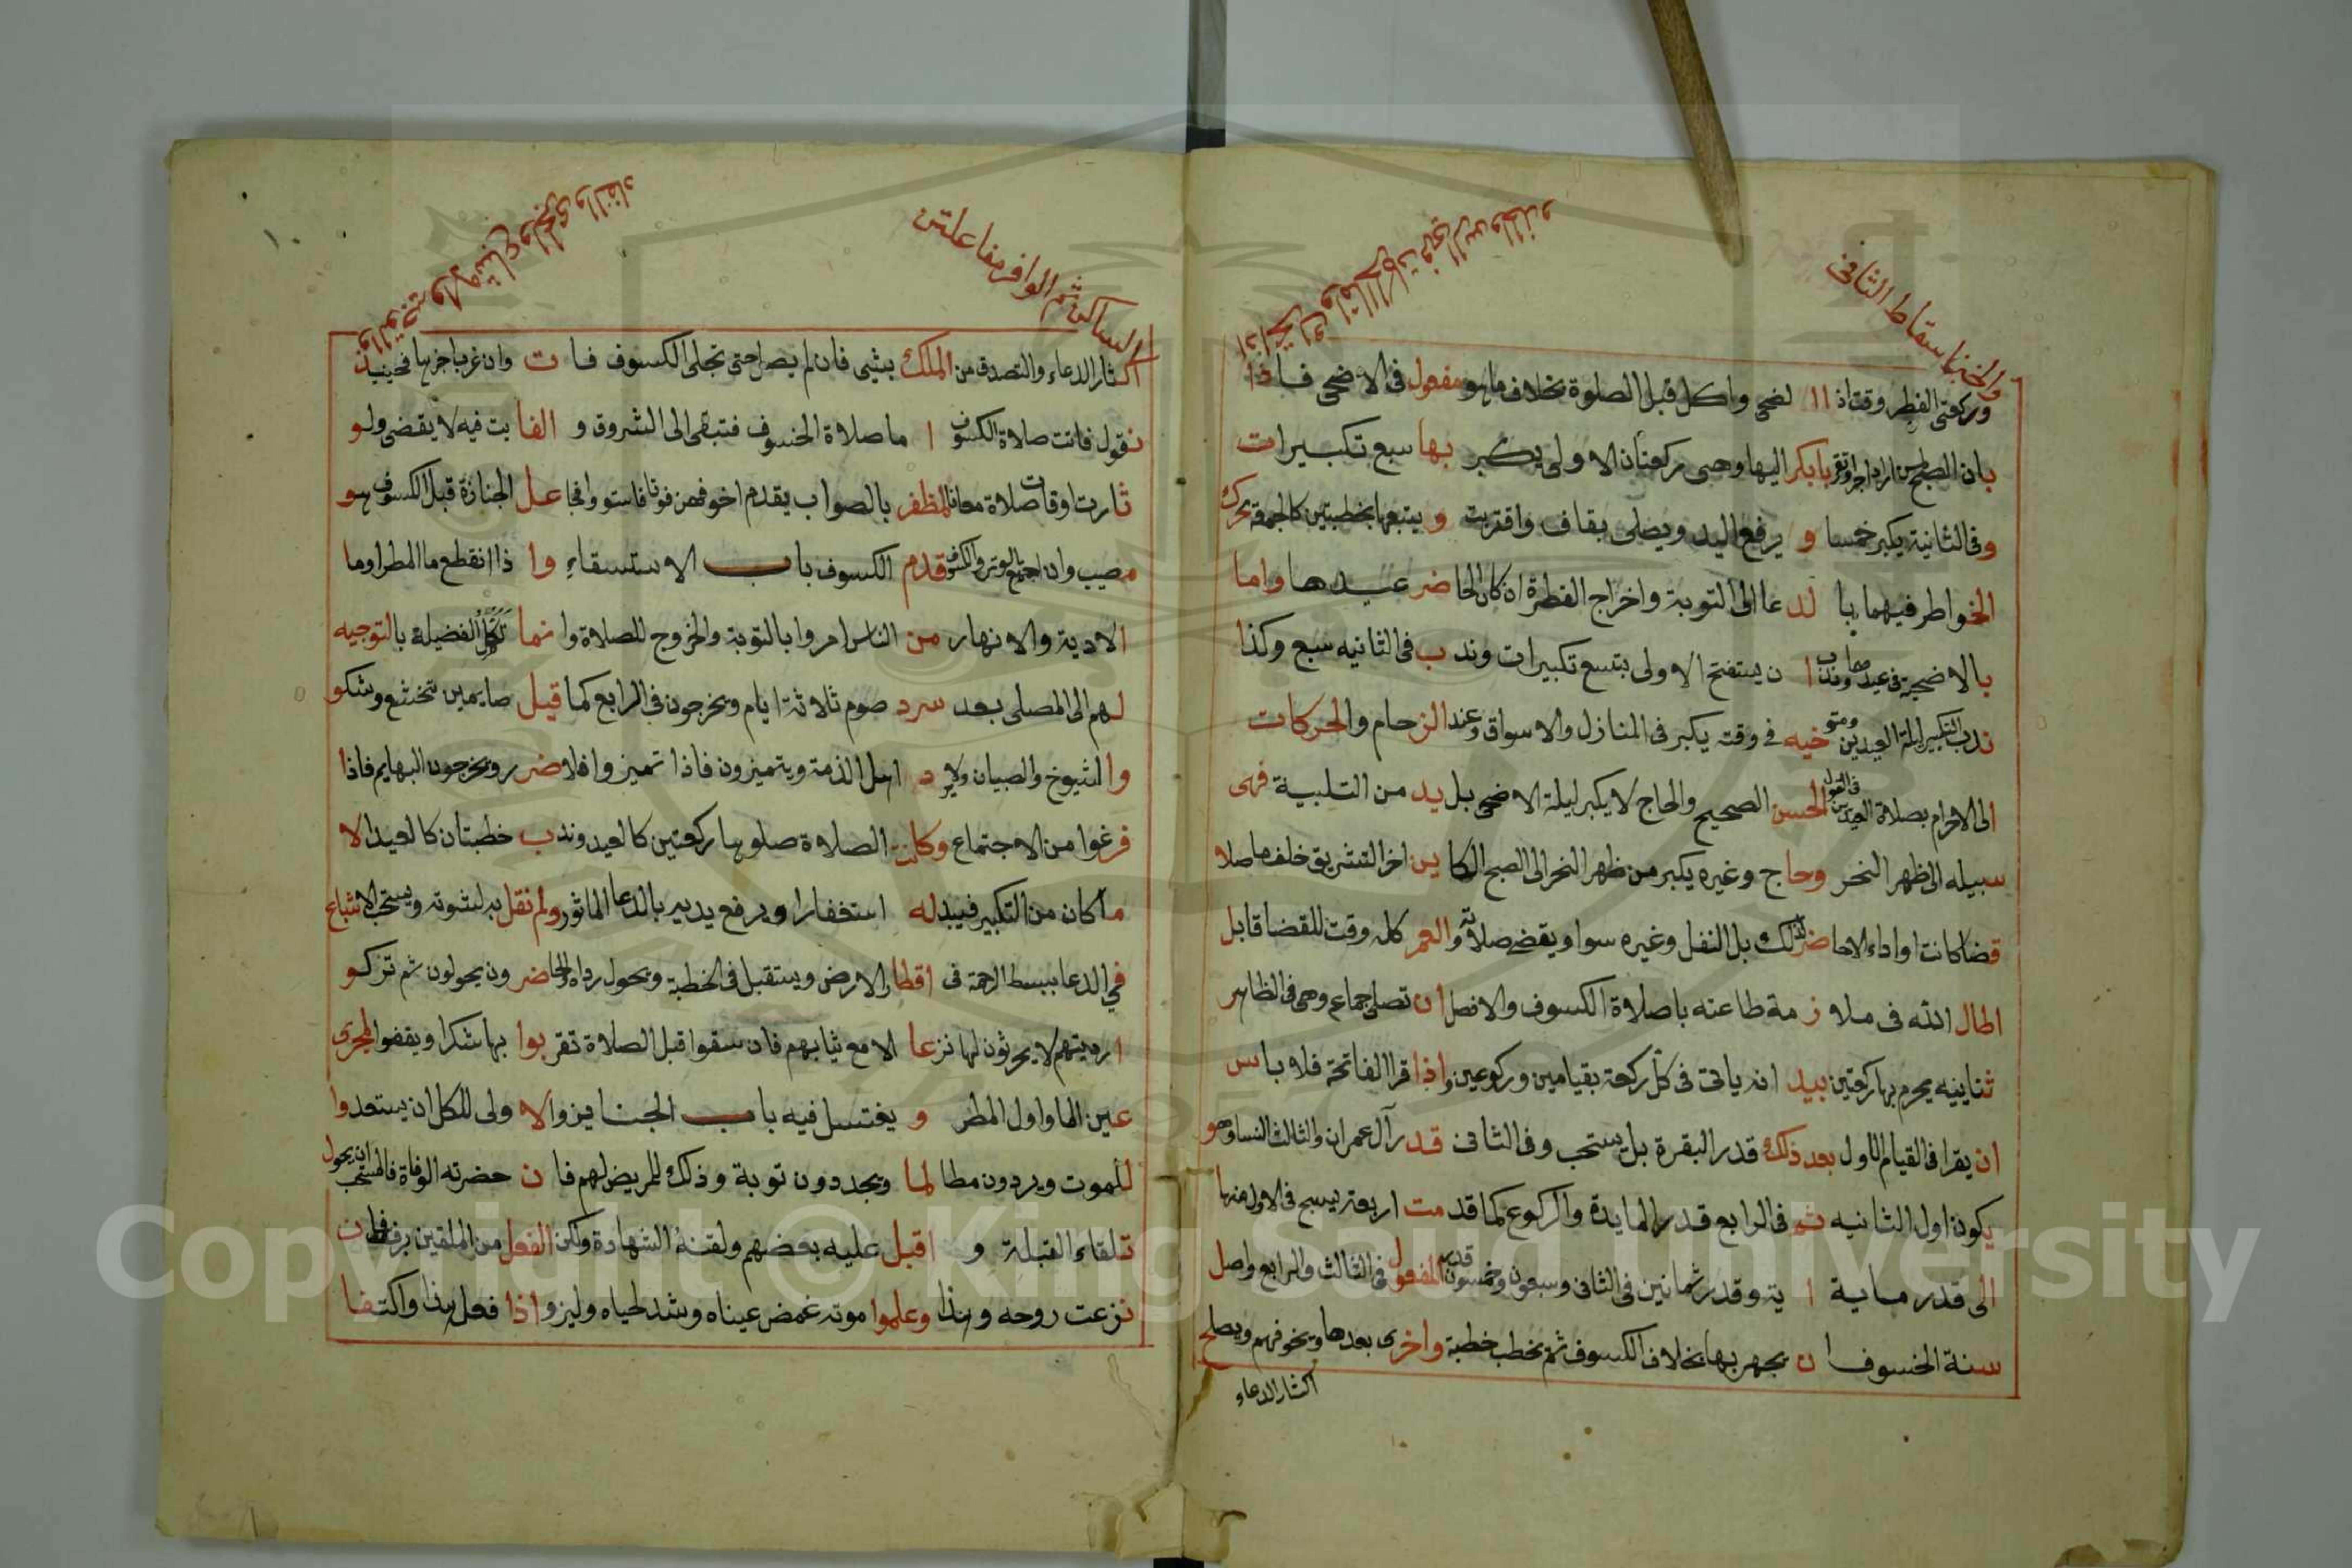 والخبن اسقاط الثاني
وركعتى الفطر وقتاذ ا ا لضحى واكل قبل الصلوة بخلاف ما هو مفعول فى الاضحى فاذا
بان الصبح من اراد اجرا وتقربا بكر اليها وهى ركعتان الاولى يكبر بها سبع تكبيرات
وفى الثانية يكبر خمسا و يرفع اليد ويصلى بقاف واقتربت و يتبعها بخطبتين كالجمعة تحرك
الخواطر فيهما با لد عا الى التوبة واخراج الفطرة ان كان الحاضر عيدها واما
بالاضحية فى عيدها وندب ا ن يستفتح الاولى بتسع تكبيرات وندب فى الثانيه سبع وكذا
ندب التكبير ليلة العيدين ومتوخيه فى وقته يكبر فى المنازل والاسواق وعند الزحام والحركات
الى الاحرام بصلاة العيدين فى القول الحسن الصحيح والحاج لا يكبر ليلة الاضحى بل يد من التلبية فهى
سبيله الى ظهر النحر وحاج وغيره يكبر من ظهر النحر الى الصبح الكاين اخر التشريق خلف ما صلا
قضا كانت اواداء الاحاضر لك بل النفل وغيره سوا ويقضى صلاته والعمر كله وقت للقضا قابل
اطال الله فى ملازمة طاعته باصلاة الكسوف والافضل ان تصلى جماعه وهى فى الظاهر
ثنايينيه يحرم بها ركعتين بيد انه ياتى فى كل ركعة بقيامين وركوعين واذا قرا الفاتحة فلا باس
ان يقرا فى القيام الاول بعد ذلك قدر البقرة بل يستحب وفى الثانى قدر آل عمران والثالث النسا وهو
يكون اول الثانيه ثم فى الرابع قدر المايدة والركوع كما قدمت اربعة يسبح فى الاول منها
الى قدر ماية ا ية وقدر ثمانين فى الثانى وسبعون وخمسون قدره المفعول فى الثالث والرابع واصل
سنة الخسوف ا ن يجهر بها بخلاف الكسوف ثم يخطب خطبة واخرى بعدها ويخوفهم ويصلح
اكثار الدعاء و
الساكن ثم الوافر مفاعلتن
اكثار الدعاء والتصدق من الملك يشيى فان لم يصل حتى تجلى الكسوف فات وان غربا جزبها فحينيذ
نقول فاتت صلاة الكسوف ا ما صلاة الخسوف فتبقى الى الشروق و الفايت فيه لا يقضى ولو
ثارت اوقات صلاة معا فالمظفر بالصواب يقدم اخوفهن فوتا فاستووا فجاعل الجنازة قبل الكسوف هو
مصيب وان اجتمع الوتر والكسوف قدم الكسوف باب الاستسقاء وا ذا انقطع ما المطر اوما
الاديه والانهار من الناس امروا بالتوبة والخروج للصلاة وا نما تكمل الفضيلة بالتوجيه
لهم الى المصلى بعد سرد صوم ثلاثة ايام ويخرجون فى الرابع كما قيل صايمين تخشع وشكو
والشيوخ والصبيان ولا يرد اهل الذمة ويتميزون فاذا تميزوا فلا ضرر ويخرجون البهايم فاذا
فرغوا من الاجتماع وكانت الصلاة صلوها ركعتين كالعيد وندب خطبتان كالعيد الا
ما كان من التكبير فيبدله استغفارا ويرفع يديه بالدعا الماثور ولم نقل بدلشوته ويستحب الاشباع
فى الدعا ببسط الرحمة فى اقطار الارض ويستقبل فى الخطبة ويحول رداه والحاضرون يحولون ثم تركو
ارديتهم لا يحرثون لها نزعا الا مع ثيابهم فان سقوا قبل الصلاة تقربوا بها شكرا ويقفوا المجرى
عين الما واول المطر و يغتسل فيه باب الجنايز والاولى للكل ان يستعدوا
للموت ويردون مطالما ويجددون توبة وذلك للمريض لهم فان حضرته الوفاة فالمستحب ان يحول
تلقاء القبلة و اقبل عليه بعضهم ولقنه الشهادة ولكن الفعل من الملقين برفق فان
نزعت روحه وهذا وعلموا موته غمض عيناه وشد لحياه وليزوا ذا فعل هذا واكتفا